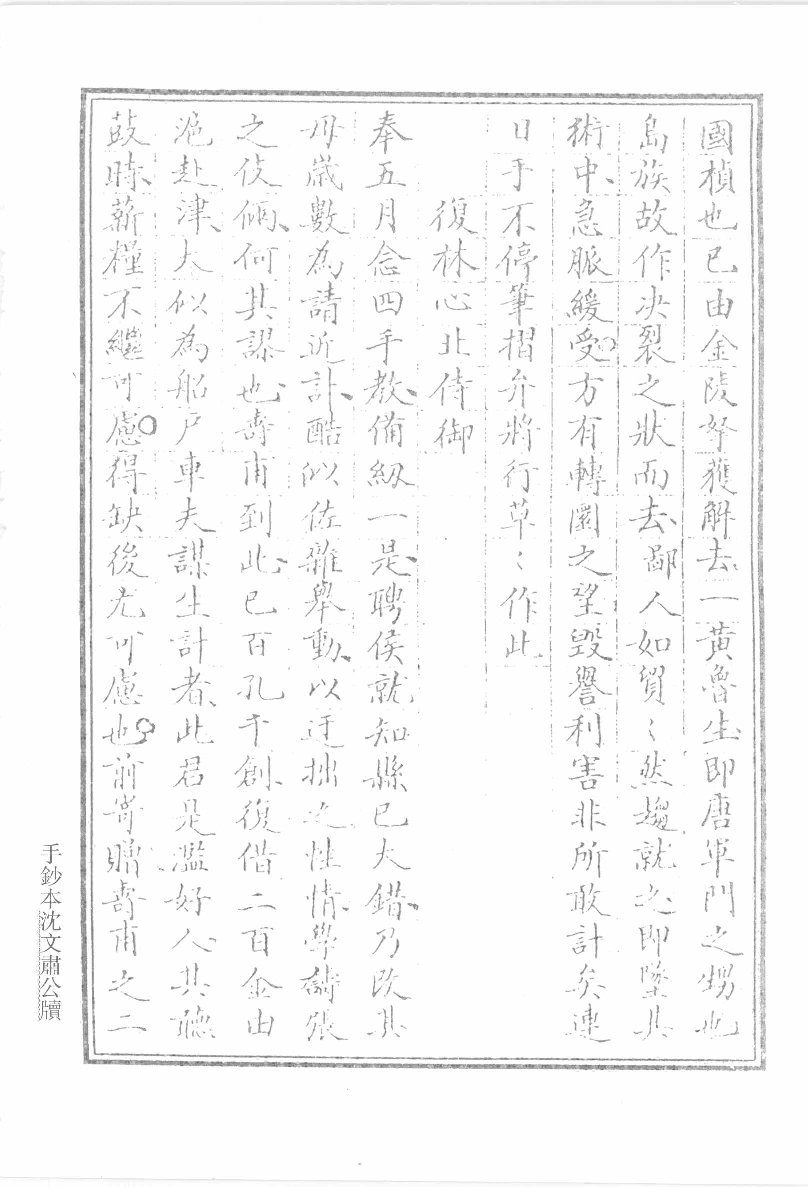 國楨也已由金陵拏獲解去一黃魯生即唐軍門之甥也
島族故作決裂之狀而去鄙人如貿〻然趨就之即墮其
術中急脈緩受方有轉圜之望毀譽利害非所敢計矣連
日手不停筆摺弁將行草〻作此
復林心北侍御
奉五月念四手教備紉一是聘侯就知縣已大錯乃改其
母歲數為請近訃酷似佐雜舉動以迂拙之性情學譸張
之伎倆何其謬也壽甫到此已百孔千創復借二百金由
滬赴津大似為船戶車夫謀生計者此君是濫好人其聽
鼓時薪糧不繼可慮得缺後尤可慮也前寄贈壽甫之二
手鈔本沈文肅公牘